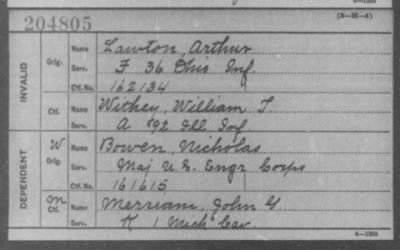 (3—H—4)
204805
INVALID
Orig.
Name Lawton, Arthur
Serv. F 36 Ohio Inf.
Ctf. No. 162134
Ctf.
Name Withey, William T.
Serv. A 92 Ill Inf
DEPENDENT
W
Orig.
Name Bowen, Nicholas
Serv. Maj U.S. Engr Corps
Ctf. No. 161615
M
Ctf.
Name Merriam, John G
Serv. K 1 Mich Cav.